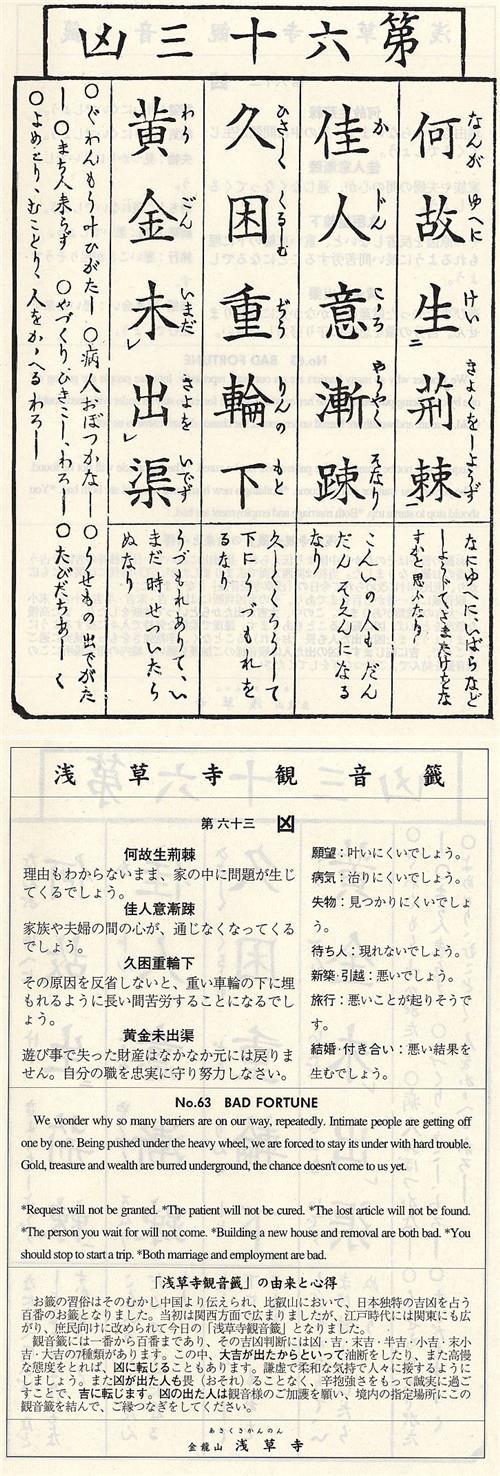 第六十三凶
何故生荊棘
なんが ゆへに けい きよくをしようず
佳人意漸踈
か じん こゝろ やや〱 そなり
久困重輪下
ひさしく くるしむ ぢうりんの もと
黄金未出渠
わう ごん いまだ きよを いでず
なにゆへに、いばらなど
しようじてさまたげをな
すかと思ふなり
こんいの人もだん
だんそえんになる
なり
久しくくろうして
下にうづもれを
るなり
うづもれありて、い
まだ時せついたら
ぬなり
○ぐわんもう叶ひがたし ○病人おぼつかなし ○うせもの出でがた
し ○まち人来らず ○やづくりひきこし、わろし ○たびだちあしく
○よめとり、むことり、人をかゝへるわろし
浅草寺観音籤
第六十三 凶
何故生荊棘
理由もわからないまま、家の中に問題が生じ
てくるでしょう。
佳人意漸踈
家族や夫婦の間の心が、通じなくなってくる
でしょう。
久困重輪下
その原因を反省しないと、重い車輪の下に埋
もれるように長い間苦労することになるでし
ょう。
黄金未出渠
遊び事で失った財産はなかなか元には戻りま
せん。自分の職を忠実に守り努力しなさい。
願望：叶いにくいでしょう。
病気：治りにくいでしょう。
失物：見つかりにくいでしょ
う。
待ち人：現れないでしょう。
新築・引越：悪いでしょう。
旅行：悪いことが起りそうで
す。
結婚・付き合い：悪い結果を
生むでしょう。
No.63 BAD FORTUNE
We wonder why so many barriers are on our way, repeatedly. Intimate people are getting off
one by one. Being pushed under the heavy wheel, we are forced to stay its under with hard trouble.
Gold, treasure and wealth are burred underground, the chance doesn't come to us yet.
*Request will not be granted. *The patient will not be cured. *The lost article will not be found.
*The person you wait for will not come. *Building a new house and removal are both bad. *You
should stop to start a trip. *Both marriage and employment are bad.
「浅草寺観音籤」の由来と心得
お籤の習俗はそのむかし中国より伝えられ、比叡山において、日本独特の吉凶を占う
百番のお籤となりました。当初は関西方面で広まりましたが、江戸時代には関東にも広
がり、庶民向けに改められて今日の「浅草寺観音籤」となりました。
観音籤には一番から百番まであり、その吉凶判断には凶・吉・末吉・半吉・小吉・末小
吉・大吉の7種類があります。この中、大吉が出たからといって油断をしたり、また高慢
な態度をとれば、凶に転じることもあります。謙虚で柔和な気持で人々に接するように
しましょう。また凶が出た人も畏（おそれ）ることなく、辛抱強さをもって誠実に過ご
すことで、吉に転じます。凶の出た人は観音様のご加護を願い、境内の指定場所にこの
観音籤を結んで、ご縁つなぎをしてください。
あさくさかんのん
金龍山 浅草寺